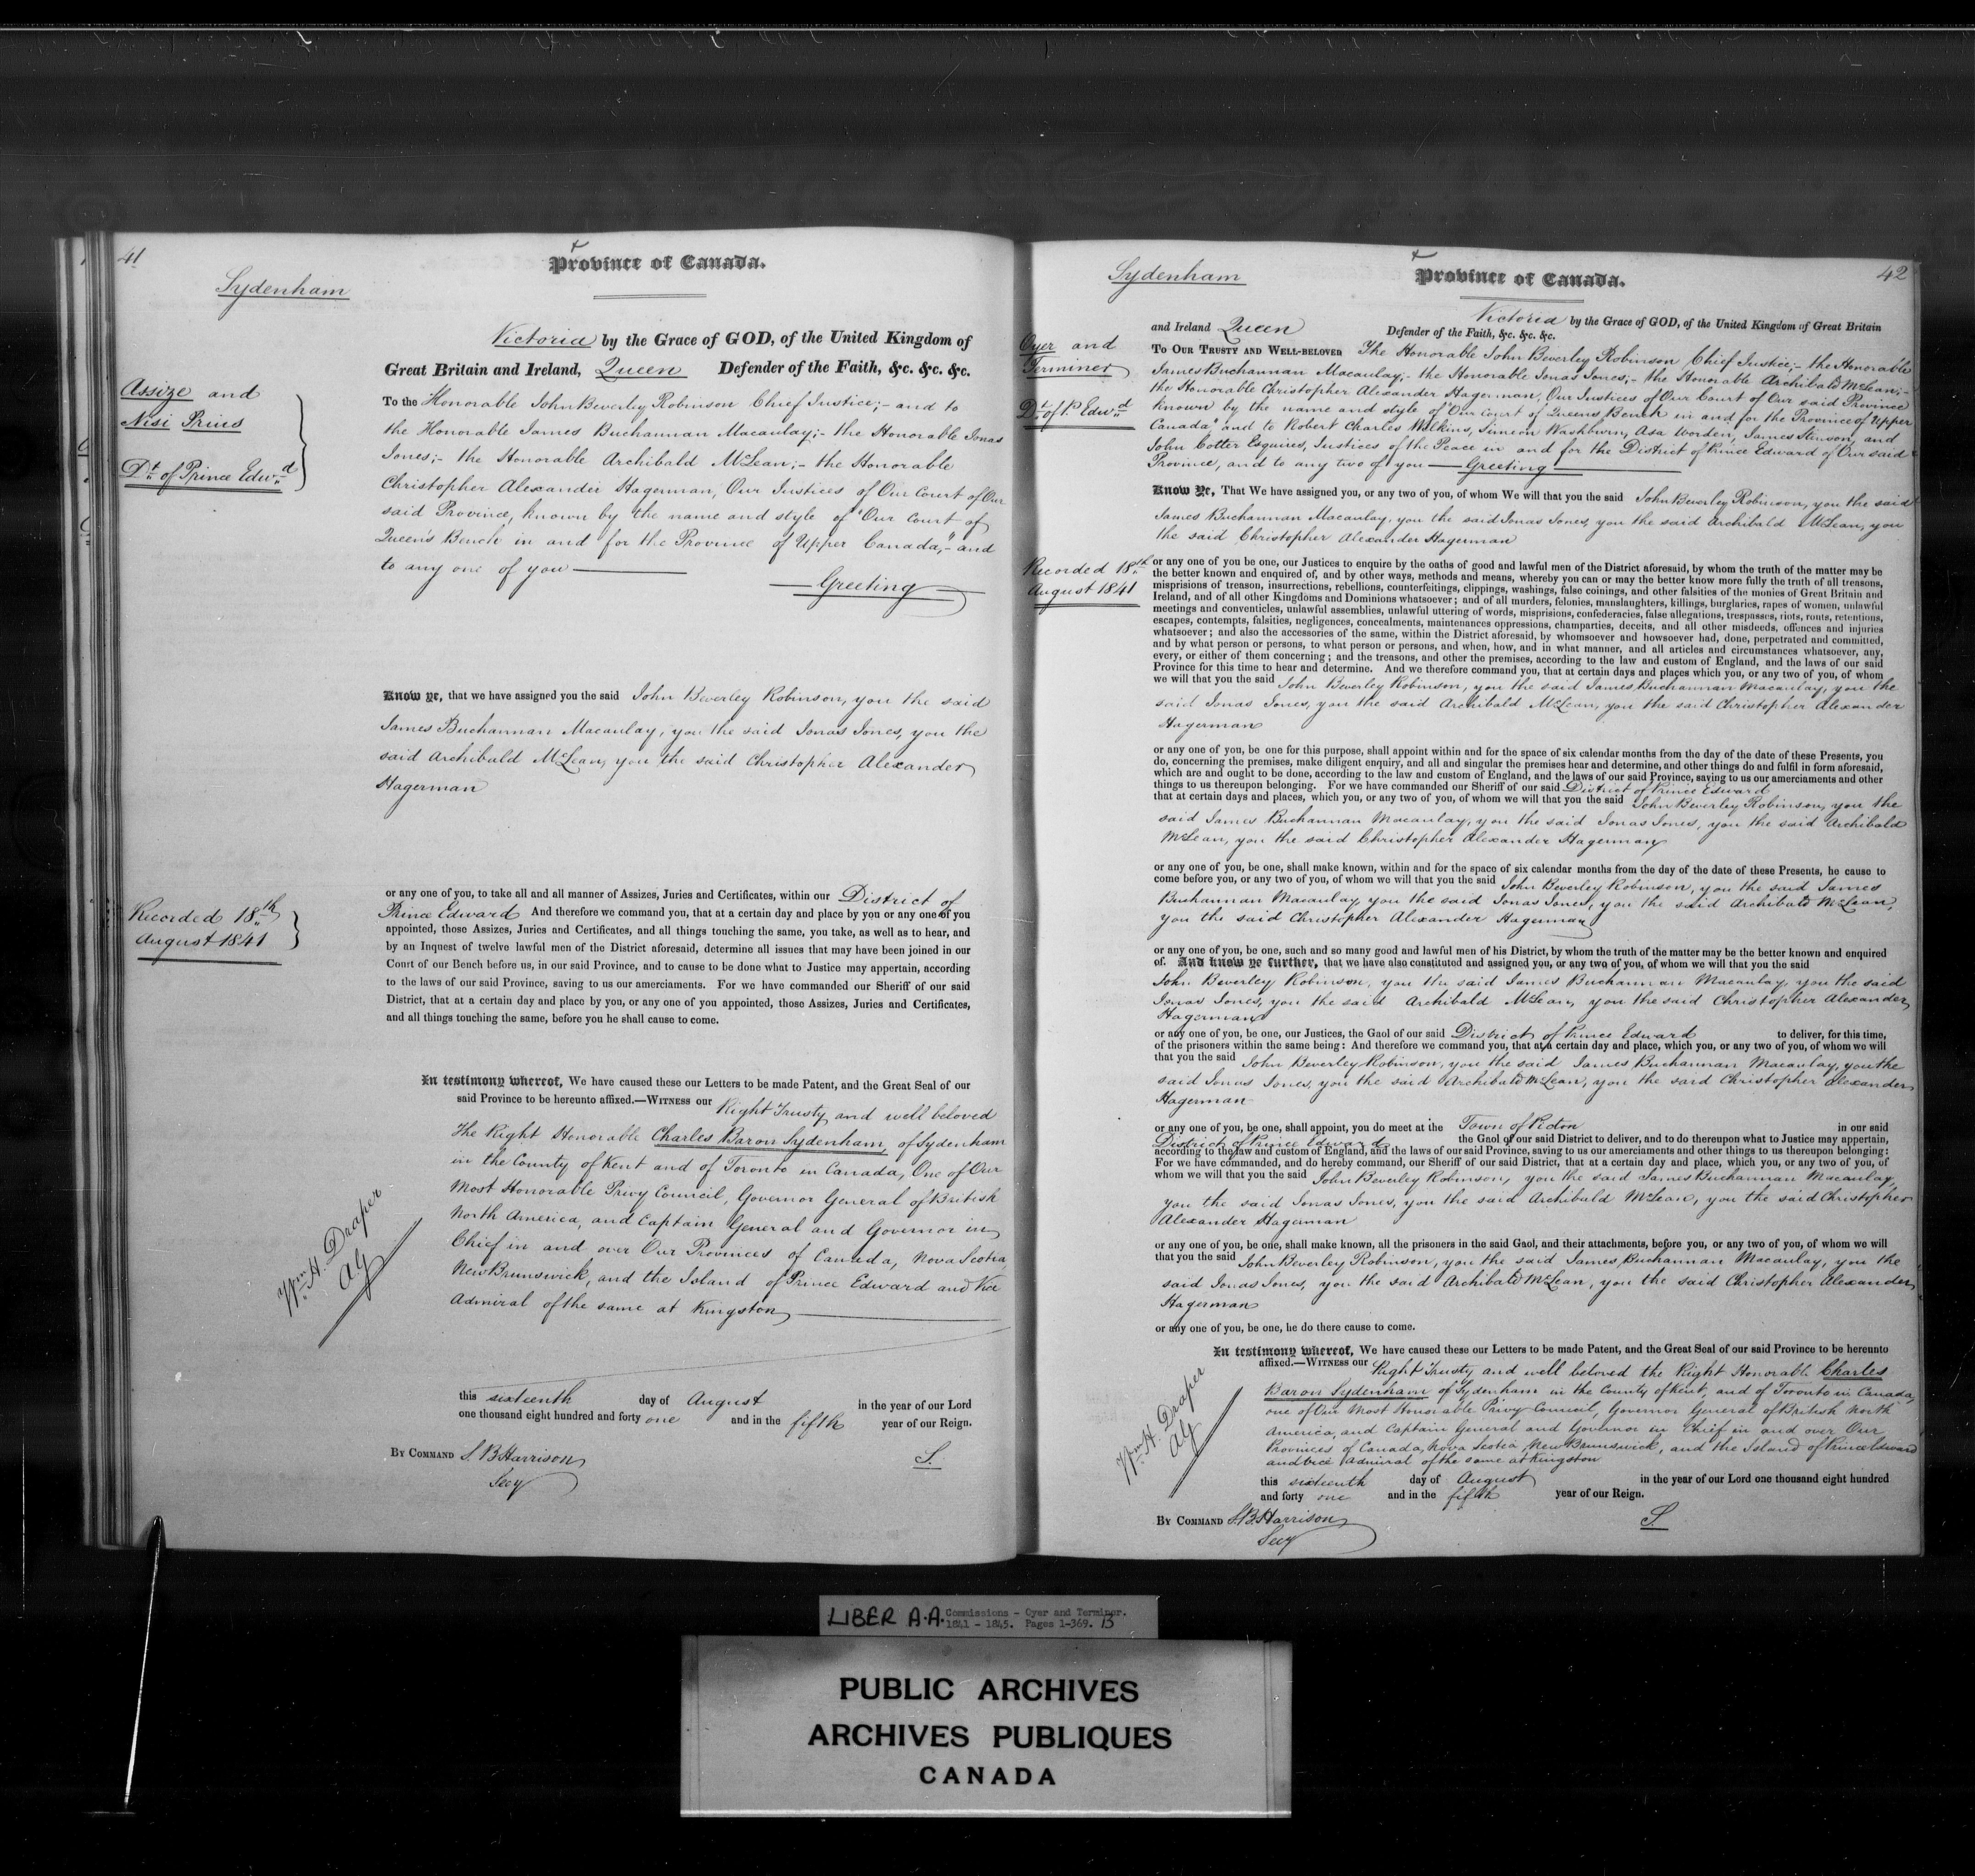 41
Province of Canada.
Sydenham
Victoria by the Grace of GOD, of the United Kingdom of
Great Britain and Ireland, Queen Defender of the Faith, &c. &c. &c.
Assize and
Nisi Prius
Dt. of Prince Edwd.
To the Honorable John Beverley Robinson Chief Justice;- and to
the Honorable James Buchannan Macaulay;- the Honorable Jonas
Jones;- the Honorable Archibald McLean;- the Honorable
Christopher Alexander Hagerman, Our Justices of Our Court of Our
said Province, known by the name and style of "Our Court of
Queen's Bench in and for the Province of Upper Canada,"- and
to any one of you
Greeting
Know ye, that we have assigned you the said John Beverley Robinson, you the said
James Buchannan Macaulay, you the said Jonas Jones, you the
said Archibald McLean, you the said Christopher Alexander
Hagerman
Recorded 18th
August 1841
or any one of you, to take all and all manner of Assizes, Juries and Certificates, within our District of
Prince Edward And therefore we command you, that at a certain day and place by you or any one of you
appointed, those Assizes, Juries and Certificates, and all things touching the same, you take, as well as to hear, and
by an Inquest of twelve lawful men of the District aforesaid, determine all issues that may have been joined in our
Court of our Bench before us, in our said Province, and to cause to be done what to Justice may appertain, according
to the laws of our said Province, saving to us our amerciaments. For we have commanded our Sheriff of our said
District, that at a certain day and place by you, or any one of you appointed, those Assizes, Juries and Certificates,
and all things touching the same, before you he shall cause to come.
In testimony whereof, We have caused these our Letters to be made Patent, and the Great Seal of our
said Province to be hereunto affixed.—WITNESS our Right Trusty and well beloved
The Right Honorable Charles Baron Sydenham, of Sydenham
in the County of Kent and of Toronto in Canada, One of Our
Most Honorable Privy Council, Governor General of British
North America, and Captain General and Governor in
Chief in and over Our Provinces of Canada, Nova Scotia
New Brunswick, and the Island of Prince Edward and Vice
Admiral of the same at Kingston
Wm. H. Draper
AG
this sixteenth day of August in the year of our Lord
one thousand eight hundred and forty one and in the fifth year of our Reign.
BY COMMAND S. B. Harrison S.
Secy
42
Province of Canada.
Sydenham
Victoria by the Grace of GOD, of the United Kingdom of Great Britain
and Ireland Queen Defender of the Faith, &c. &c. &c.
Oyer and
Terminer
Dt. of P. Edwd.
TO OUR TRUSTY AND WELL-BELOVED The Honorable John Beverley Robinson Chief Justice;- the Honorable
James Buchannan Macaulay;- the Honorable Jonas Jones;- the Honorable Archibald McLean;-
the Honorable Christopher Alexander Hagerman, Our Justices of Our Court of Our said Province
known by the name and style of "Our Court of Queens Bench in and for the Province of Upper
Canada" and to Robert Charles Wilkins, Simeon Washburn, Asa Worden, James Stinson, and
John Cotter Esquires, Justices of the Peace in and for the District of Prince Edward of Our said
Province, and to any two of you — Greeting
Know Ye, That We have assigned you, or any two of you, of whom We will that you the said John Beverley Robinson, you the said
James Buchannan Macaulay, you the said Jonas Jones, you the said Archibald McLean, you
the said Christopher Alexander Hagerman
Recorded 18th
August 1841
or any one of you be one, our Justices to enquire by the oaths of good and lawful men of the District aforesaid, by whom the truth of the matter may be
the better known and enquired of, and by other ways, methods and means, whereby you can or may the better know more fully the truth of all treasons,
misprisions of treason, insurrections, rebellions, counterfeitings, clippings, washings, false coinings, and other falsities of the monies of Great Britain and
Ireland, and of all other Kingdoms and Dominions whatsoever; and of all murders, felonies, manslaughters, killings, burglaries, rapes of women, unlawful
meetings and conventicles, unlawful assemblies, unlawful uttering of words, misprisions, confederacies, false allegations, trespasses, riots, routs, retentions,
escapes, contempts, falsities, negligences, concealments, maintenances oppressions, champarties, deceits, and all other misdeeds, offences and injuries
whatsoever; and also the accessories of the same, within the District aforesaid, by whomsoever and howsoever had, done, perpetrated and committed,
and by what person or persons, to what person or persons, and when, how, and in what manner, and all articles and circumstances whatsoever, any,
every, or either of them concerning; and the treasons, and other the premises, according to the law and custom of England, and the laws of our said
Province for this time to hear and determine. And we therefore command you, that at certain days and places which you, or any two of you, of whom
we will that you the said John Beverley Robinson, you the said James Buchannan Macaulay, you the
said Jonas Jones, you the said Archibald McLean, you the said Christopher Alexander
Hagerman
or any one of you, be one for this purpose, shall appoint within and for the space of six calendar months from the day of the date of these Presents, you
do, concerning the premises, make diligent enquiry, and all and singular the premises hear and determine, and other things do and fulfil in form aforesaid,
which are and ought to be done, according to the law and custom of England, and the laws of our said Province, saving to us our amerciaments and other
things to us thereupon belonging. For we have commanded our Sheriff of our said District of Prince Edward
that at certain days and places, which you, or any two of you, of whom we will that you the said John Beverley Robinson, you the
said James Buchannan Macaulay, you the said Jonas Jones, you the said Archibald
McLean, you the said Christopher Alexander Hagerman
or any one of you, be one, shall make known, within and for the space of six calendar months from the day of the date of these Presents, he cause to
come before you, or any two of you, of whom we will that you the said John Beverley Robinson, you the said James
Buchannan Macaulay, you the said Jonas Jones, you the said Archibald McLean,
you the said Christopher Alexander Hagerman
or any one of you, be one, such and so many good and lawful men of his District, by whom the truth of the matter may be the better known and enquired
of. And know ye further, that we have also constituted and assigned you, or any two of you, of whom we will that you the said
John Beverley Robinson, you the said James Buchannan Macaulay, you the said
Jonas Jones, you the said Archibald McLean, you the said Christopher Alexander
Hagerman
or any one of you, be one, our Justices, the Gaol of our said District of Prince Edward to deliver, for this time,
of the prisoners within the same being: And therefore we command you, that at a certain day and place, which you, or any two of you, of whom we will
that you the said John Beverley Robinson, you the said James Buchannan Macaulay, you the
said Jonas Jones, you the said Archibald McLean, you the said Christopher Alexander
Hagerman
or any one of you, be one, shall appoint, you do meet at the Town of Picton in our said
District of Prince Edward the Gaol of our said District to deliver, and to do thereupon what to Justice may appertain,
according to the law and custom of England, and the laws of our said Province, saving to us our amerciaments and other things to us thereupon belonging:
For we have commanded, and do hereby command, our Sheriff of our said District, that at a certain day and place, which you, or any two of you, of
whom we will that you the said John Beverley Robinson, you the said James Buchannan Macaulay,
you the said Jonas Jones, you the said Archibald McLean, you the said Christopher
Alexander Hagerman
or any one of you, be one, shall make known, all the prisoners in the said Gaol, and their attachments, before you, or any two of you, of whom we will
that you the said John Beverley Robinson, you the said James Buchannan Macaulay, you the
said Jonas Jones, you the said Archibald McLean, you the said Christopher Alexander
Hagerman
or any one of you, be one, he do there cause to come.
In testimony whereof, We have caused these our Letters to be made Patent, and the Great Seal of our said Province to be hereunto
affixed.—WITNESS our Right Trusty and well beloved the Right Honorable Charles
Baron Sydenham of Sydenham in the County of Kent, and of Toronto in Canada,
one of Our Most Honorable Privy Council, Governor General of British North
America, and Captain General and Governor in Chief in and over Our
Provinces of Canada, Nova Scotia New Brunswick, and the Island of Prince Edward
and Vice Admiral of the same at Kingston
Wm. H. Draper
AG
this sixteenth day of August in the year of our Lord one thousand eight hundred
and forty one and in the fifth year of our Reign.
BY COMMAND S. B. Harrison S.
Secy
LIBER A.A. Commissions - Oyer and Terminer.
1841 - 1845. Pages 1-369. B
PUBLIC ARCHIVES
ARCHIVES PUBLIQUES
CANADA